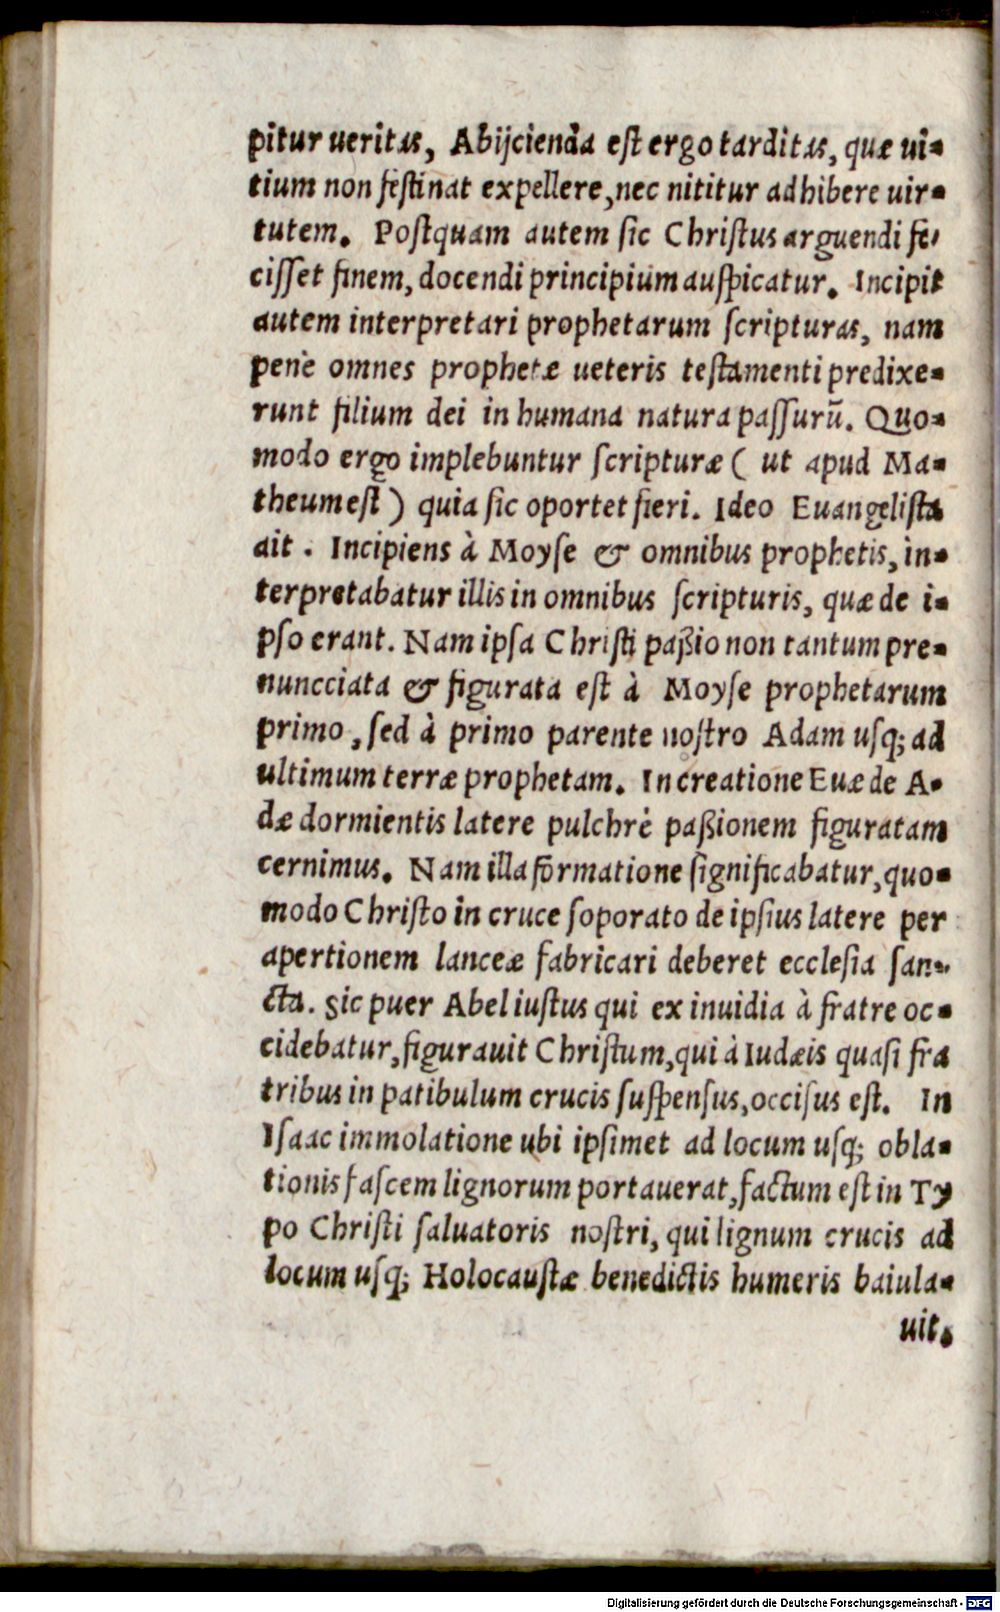 pitur ueritas, Abijcienda est ergo tarditas, quæ ui-
tium non festinat expellere, nec nititur adhibere uir-
tutem. Postquam autem sic Christus arguendi fe-
cisset finem, docendi principium auspicatur. Incipit
autem interpretari prophetarum scripturas, nam
penè omnes prophetæ ueteris testamenti predixe-
runt filium dei in humana natura passurũ. Quo-
modo ergo implebuntur scripturæ ( ut apud Ma-
theum est ) quia sic oportet fieri. Ideo Euangelista
ait . Incipiens à Moyse & omnibus prophetis, in-
terpretabatur illis in omnibus scripturis, quæ de i-
pso erant. Nam ipsa Christi paßio non tantum pre-
nuncciata & figurata est à Moyse prophetarum
primo, sed à primo parente nostro Adam usq; ad
ultimum terræ prophetam. In creatione Euæ de A-
dæ dormientis latere pulchrè paßionem figuratam
cernimus. Nam illa formatione significabatur, quo-
modo Christo in cruce soporato de ipsius latere per
apertionem lanceæ fabricari deberet ecclesia san-
cta. Sic puer Abel iustus qui ex inuidia à fratre oc-
cidebatur, figurauit Christum, qui à Iudæis quasi fra
tribus in patibulum crucis suspensus, occisus est. In
Isaac immolatione ubi ipsimet ad locum usq; obla-
tionis fascem lignorum portauerat, factum est in Ty
po Christi saluatoris nostri, qui lignum crucis ad
locum usq; Holocaustæ benedictis humeris baiula-
uit.
Digitalisierung gefördert durch die Deutsche Forschungsgemeinschaft - DFG